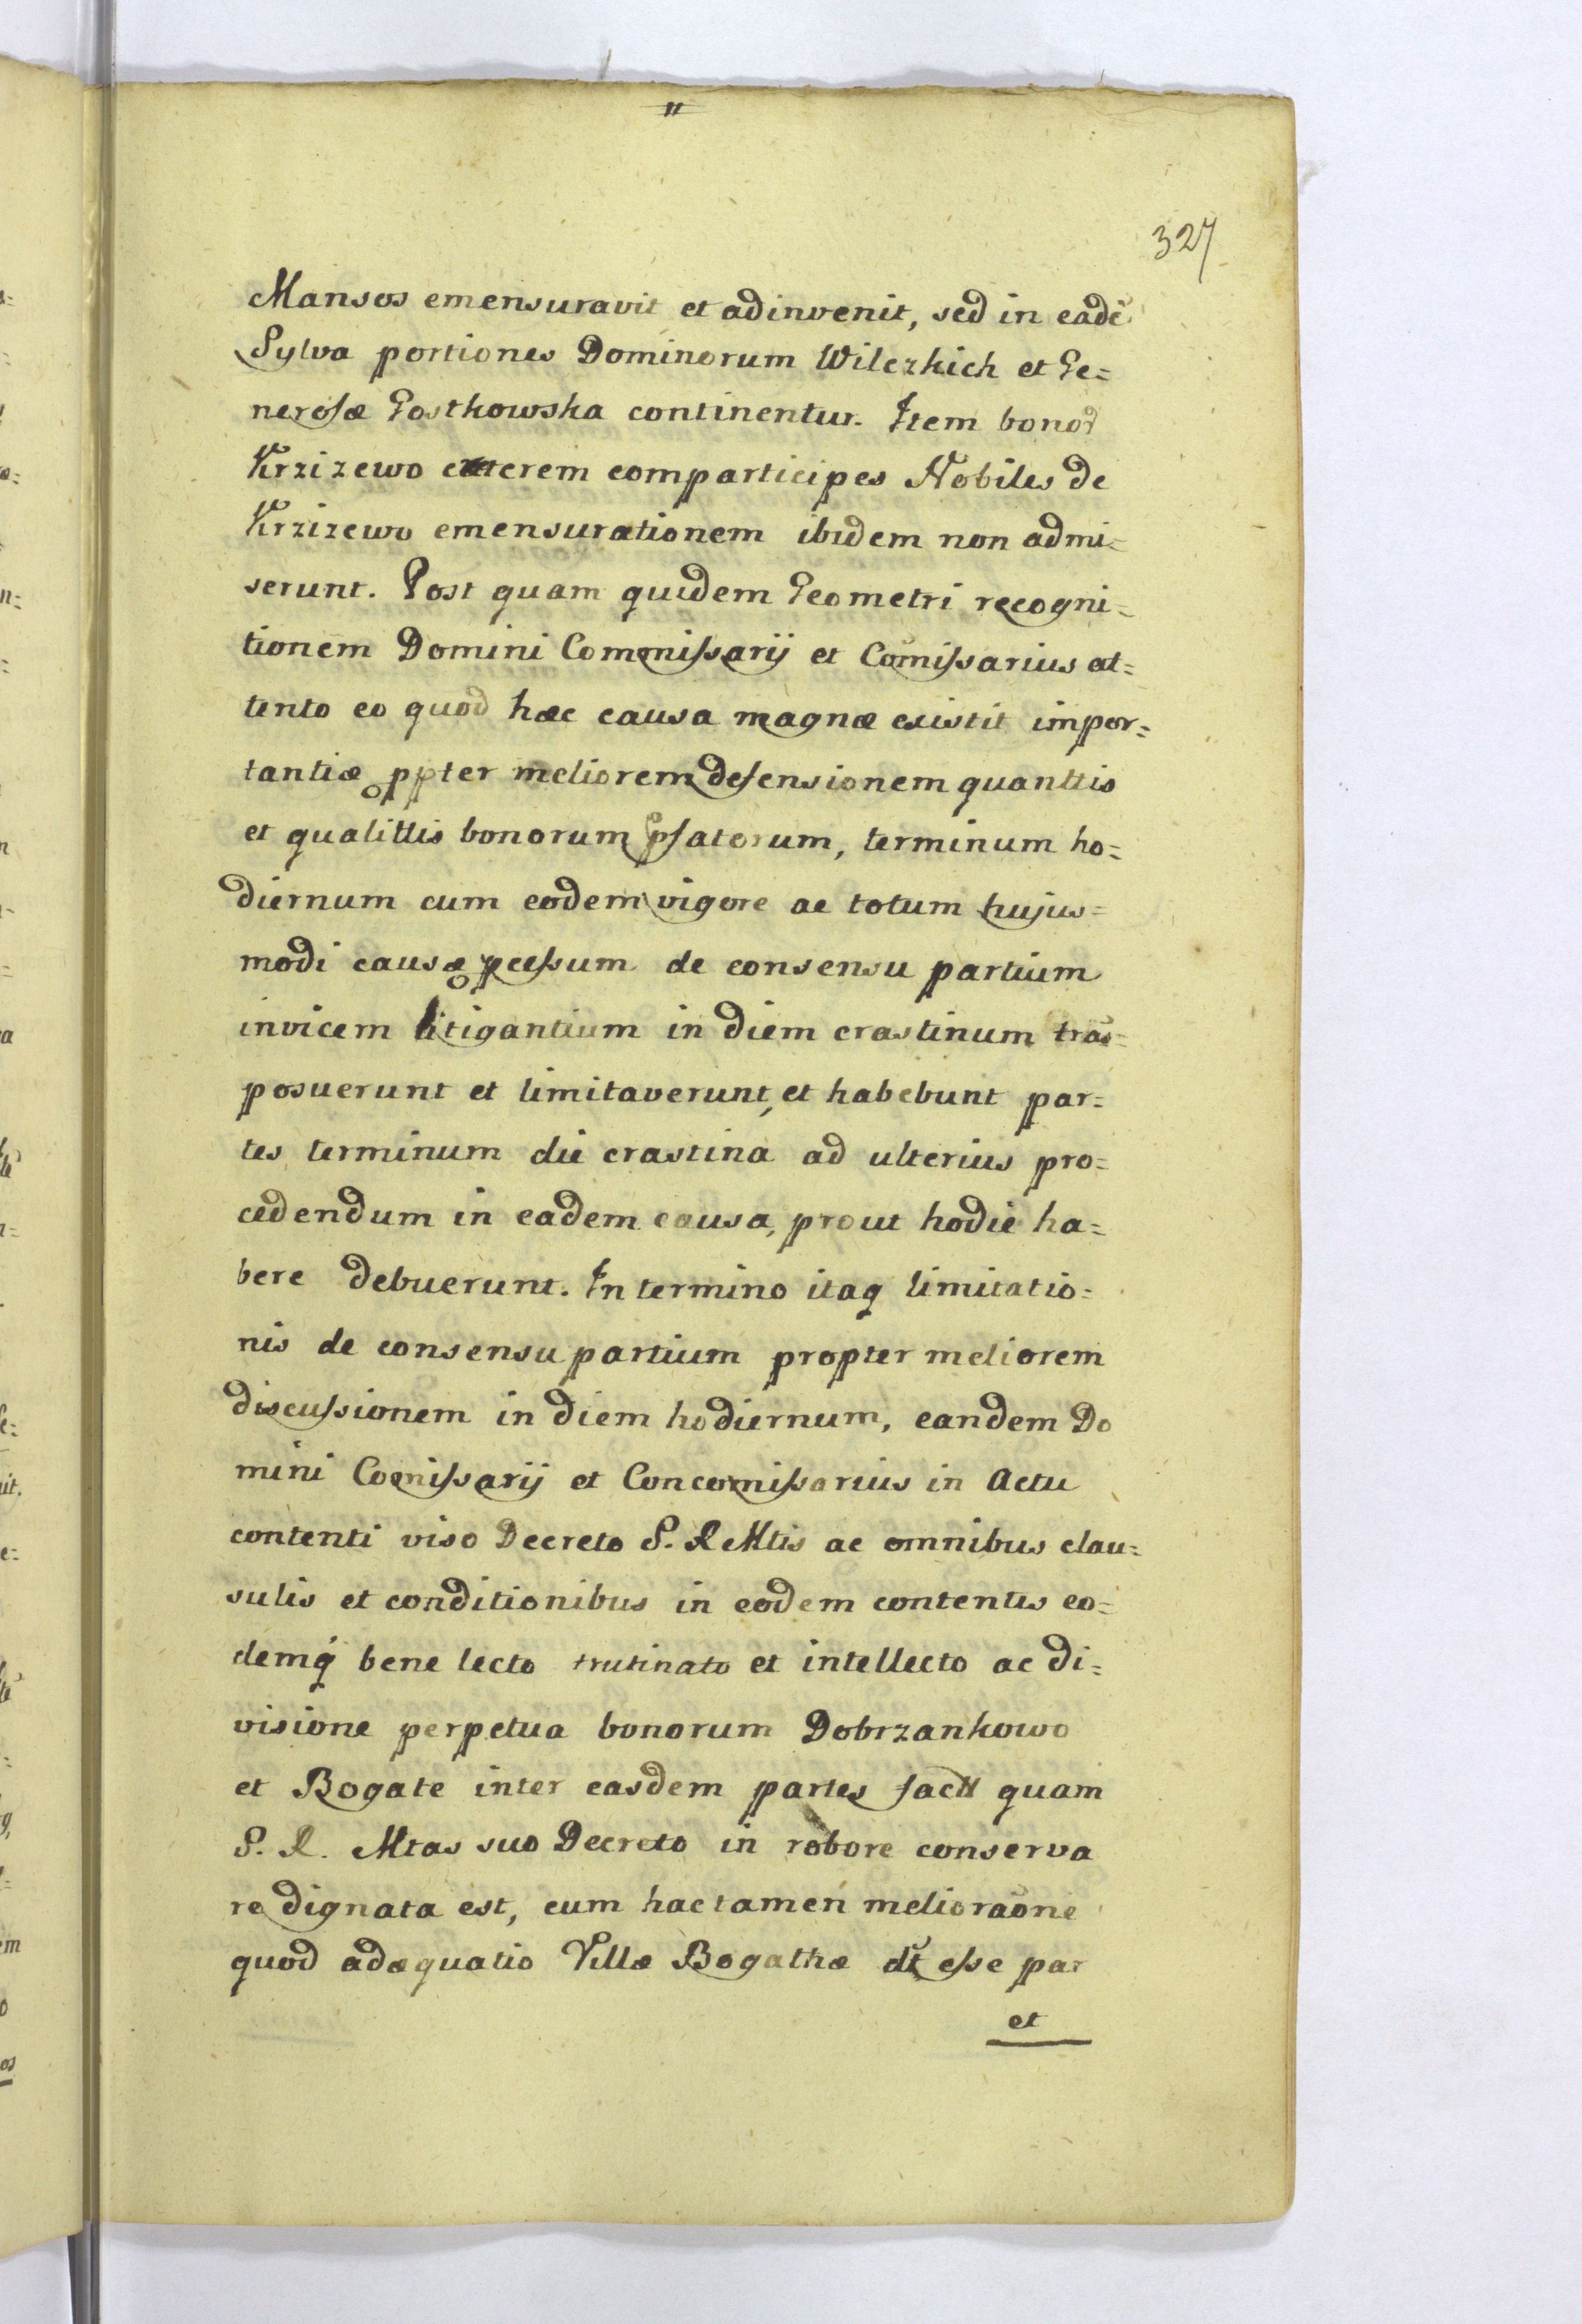 327
Mansos emensuravit et adinvenit, sed in eadē
Sylva portiones Dominorum Wilczkich et Ge=
nerosæ Gostkowska continentur. Item bonor
Krzizewo cæterem comparticipes Nobiles de
Krzizewo emensurationem ibidem non admi=
serunt. Post quam quidem Geometri recogni=
tionem Domini Commissarij et Com̃issarius at=
tento eo quod hæc causa magnæ existit impor=
tantiæ ppter meliorem defensionem quanttis
et qualittis bonorum psatorum, terminum ho=
diernum cum eodem vigore ac totum hujus=
modi causæ pcessum de consensu partium
invicem litigantium in diem crastinum trãs=
posuerunt et limitaverunt, et habebunt par=
tes terminum die crastina ad ulterius pro=
cedendum in eadem causa, prout hodie ha=
bere debuerunt. In termino itaq limitatio=
nis de consensu partium propter meliorem
discussionem in diem hodiernum, eandem Do
mini Comissarij et Concomissarius in Actu
contenti viso Decreto S. R Mtis ac omnibus clau=
sulis et conditionibus in eodem contentis eo=
demq́ bene lecto trutinato et intellecto ac di=
visione perpetua bonorum Dobrzankowo
et Bogate inter easdem partes factt quam
S. R. Mtas suo Decreto in robore conserva
re dignata est, cum hac tamen melioraõne
quod adæquatio Villæ Bogathæ dt̃ esse par
et